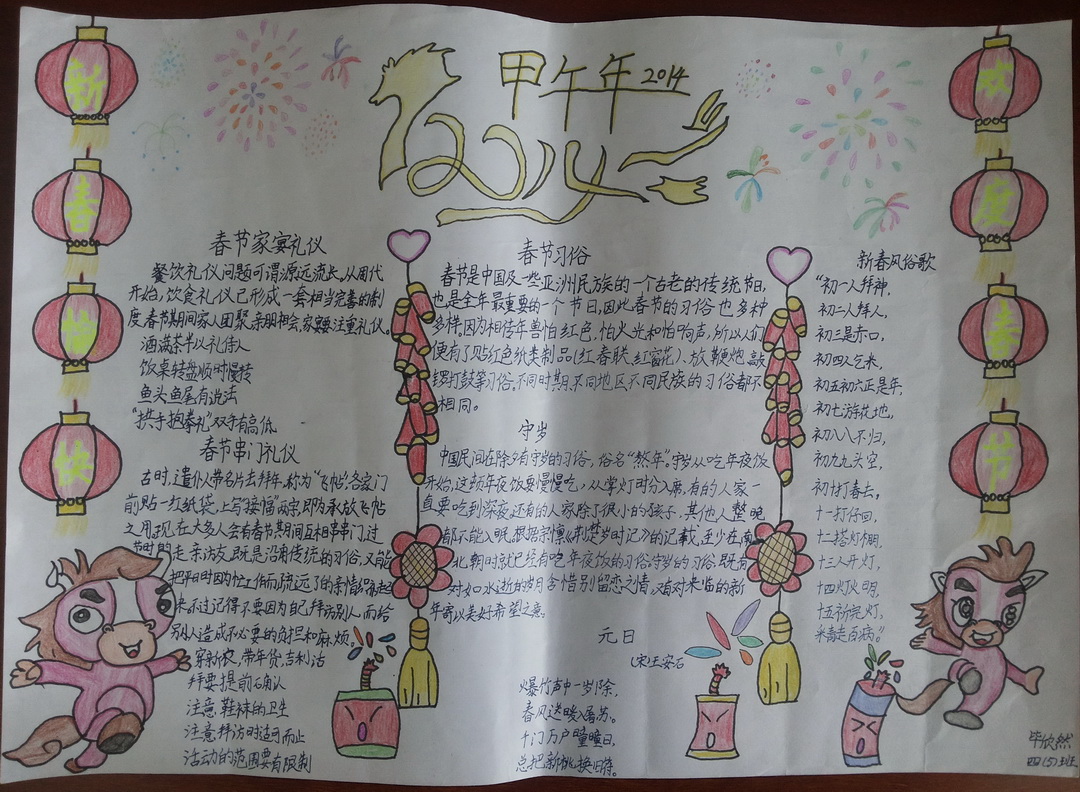 甲午年 2014
新
春
愉
快
欢
度
春
节
春节家宴礼仪
餐饮礼仪问题可谓源远流长,从周代
开始,饮食礼仪已形成一套相当完善的制
度,春节期间家人团聚,亲朋相会,家宴要注重礼仪。
酒满茶半以礼待人
饭桌转盘顺时慢转
鱼头鱼尾有说法
"拱手抱拳礼"双手有高低
春节串门礼仪
古时,遣仆人带名片去拜年,称为"飞帖",各家门
前贴一红纸袋,上写"接福"两字,即为承放飞帖
之用,现在大多人会有春节期间互相串串门,过
节时的走亲访友既是沿有传统的习俗,又能
把平时因为忙工作而疏远了的亲情
来,不过记得不要因为自己拜访别人而给
别人造成不必要的负担和麻烦。
穿新衣,带年货,吉利话
拜要提前确认
注意鞋袜的卫生
注意拜访时适可而止
活动的范围要有限制
春节习俗
春节是中国及一些亚洲民族的一个古老的传统节日,
也是全年最重要的一个节日,因此春节的习俗也多种
多样,因为相传年兽怕红色,怕火光和怕响声,所以人们
便有了贴红色纸类制品(红春联、红窗花)、放鞭炮、敲
锣打鼓等习俗,不同时期、不同地区不同民族的习俗都不
相同。
守岁
中国民间在除夕有守岁的习俗,俗名"熬年"。守岁从吃年夜饭
开始,这顿年夜饭要慢慢吃,从掌灯时分入席,有的人家一
直要吃到深夜,还有的人家除了很小的孩子,其他人整晚
都不能入眠,根据宗懔《荆楚岁时记》的记载,至少在南
北朝时就已经有吃年夜饭的习俗,守岁的习俗,既有
对如水逝的岁月含惜别留恋之情,又有对来临的新
年寄以美好希望之意。
元日
(宋)王安石
爆竹声中一岁除,
春风送暖入屠苏。
千门万户曈曈日,
总把新桃换旧符。
新春风俗歌
"初一人拜神,
初二人拜人,
初三是赤口,
初四人乞米,
初五初六正是年,
初七游花地,
初八八不归,
初九九头空,
初十打春去,
十一打仔回,
十二搭灯棚,
十三人开灯,
十四灯火明,
十五祈完灯,
米毒走百病。"
毕欣然
四(5)班